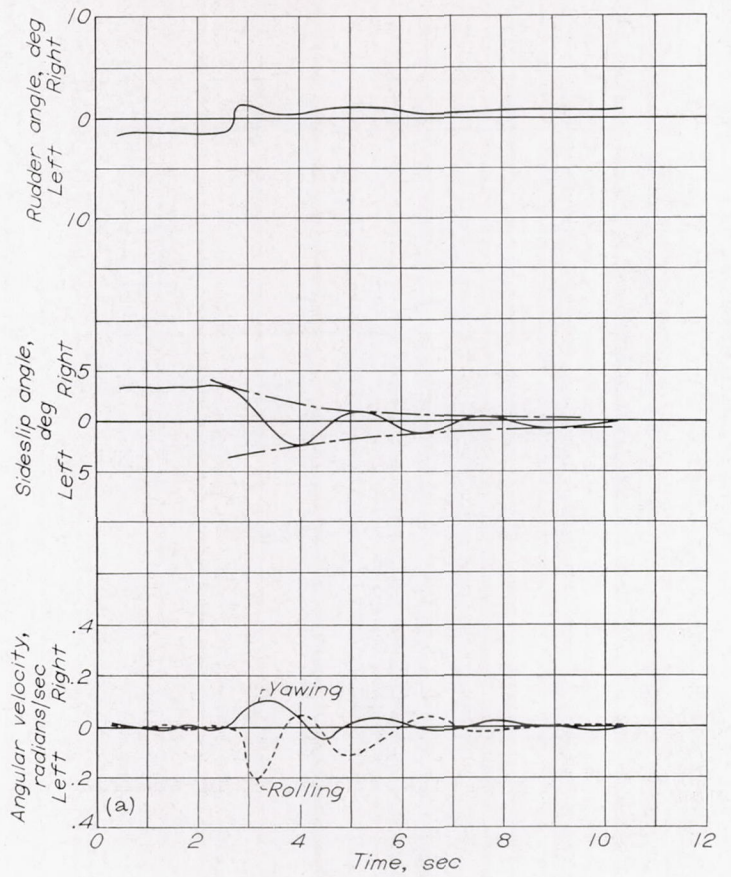 Rudder angle, deg
Left Right
10
0
10
Sideslip angle,
deg
Left Right
5
0
5
Angular velocity,
radians/sec
Left Right
.4
.2
0
.2
.4
Yawing
Rolling
(a)
0 2 4 6 8 10 12
Time, sec